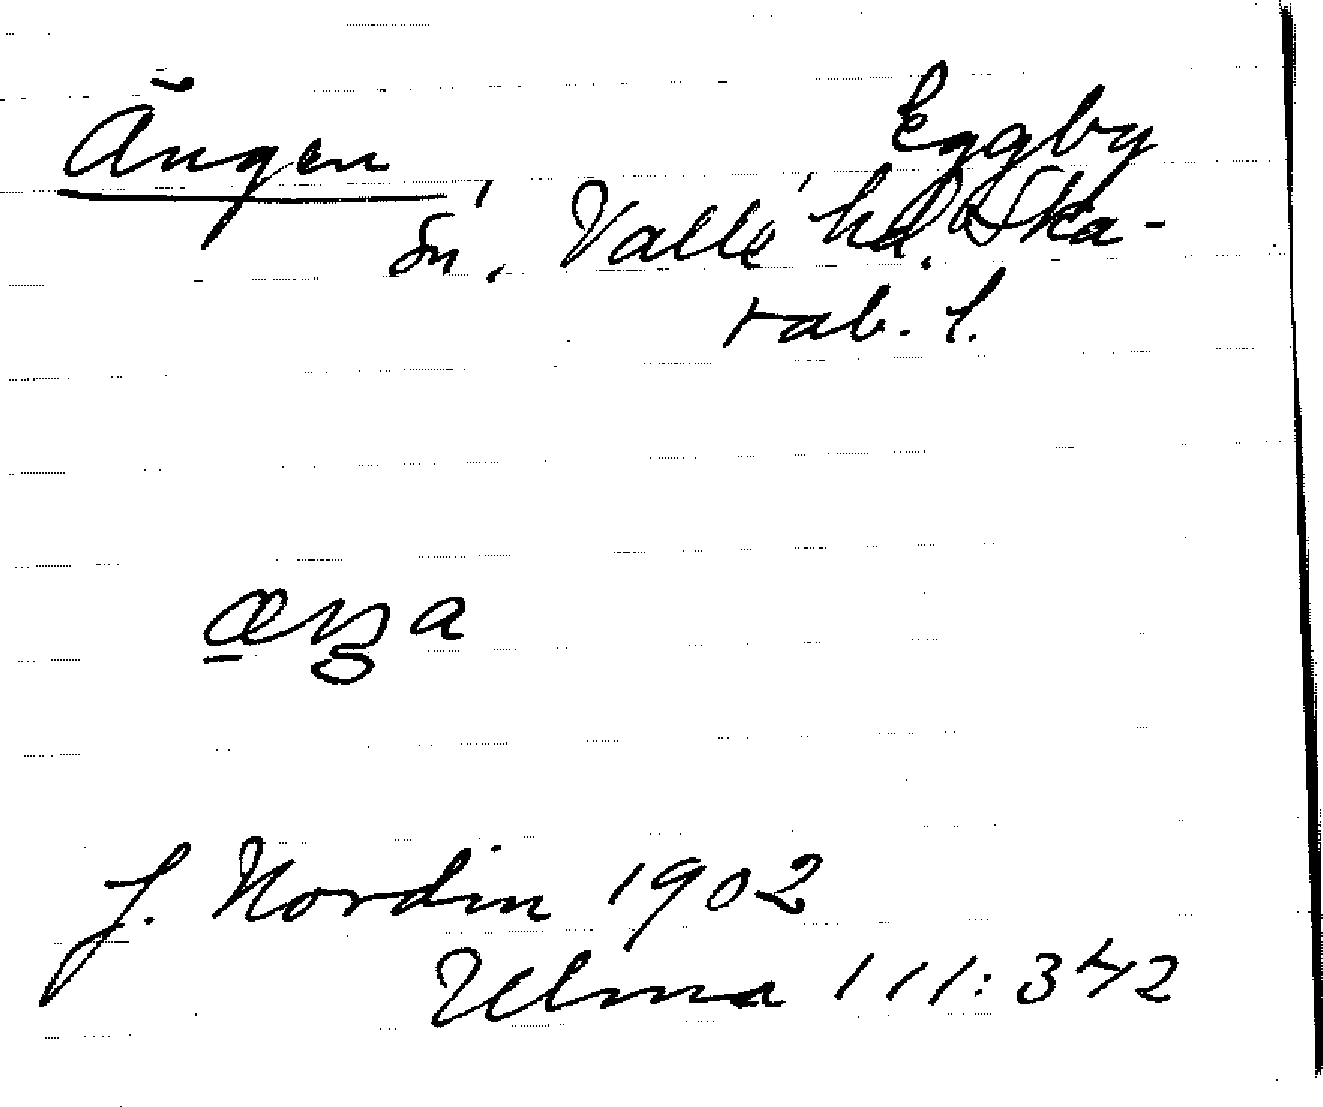 Ängen
Eggby
sn. Valle hd. Ska-
rab. l.
J. Nordin 1902
Ulma 111: 342